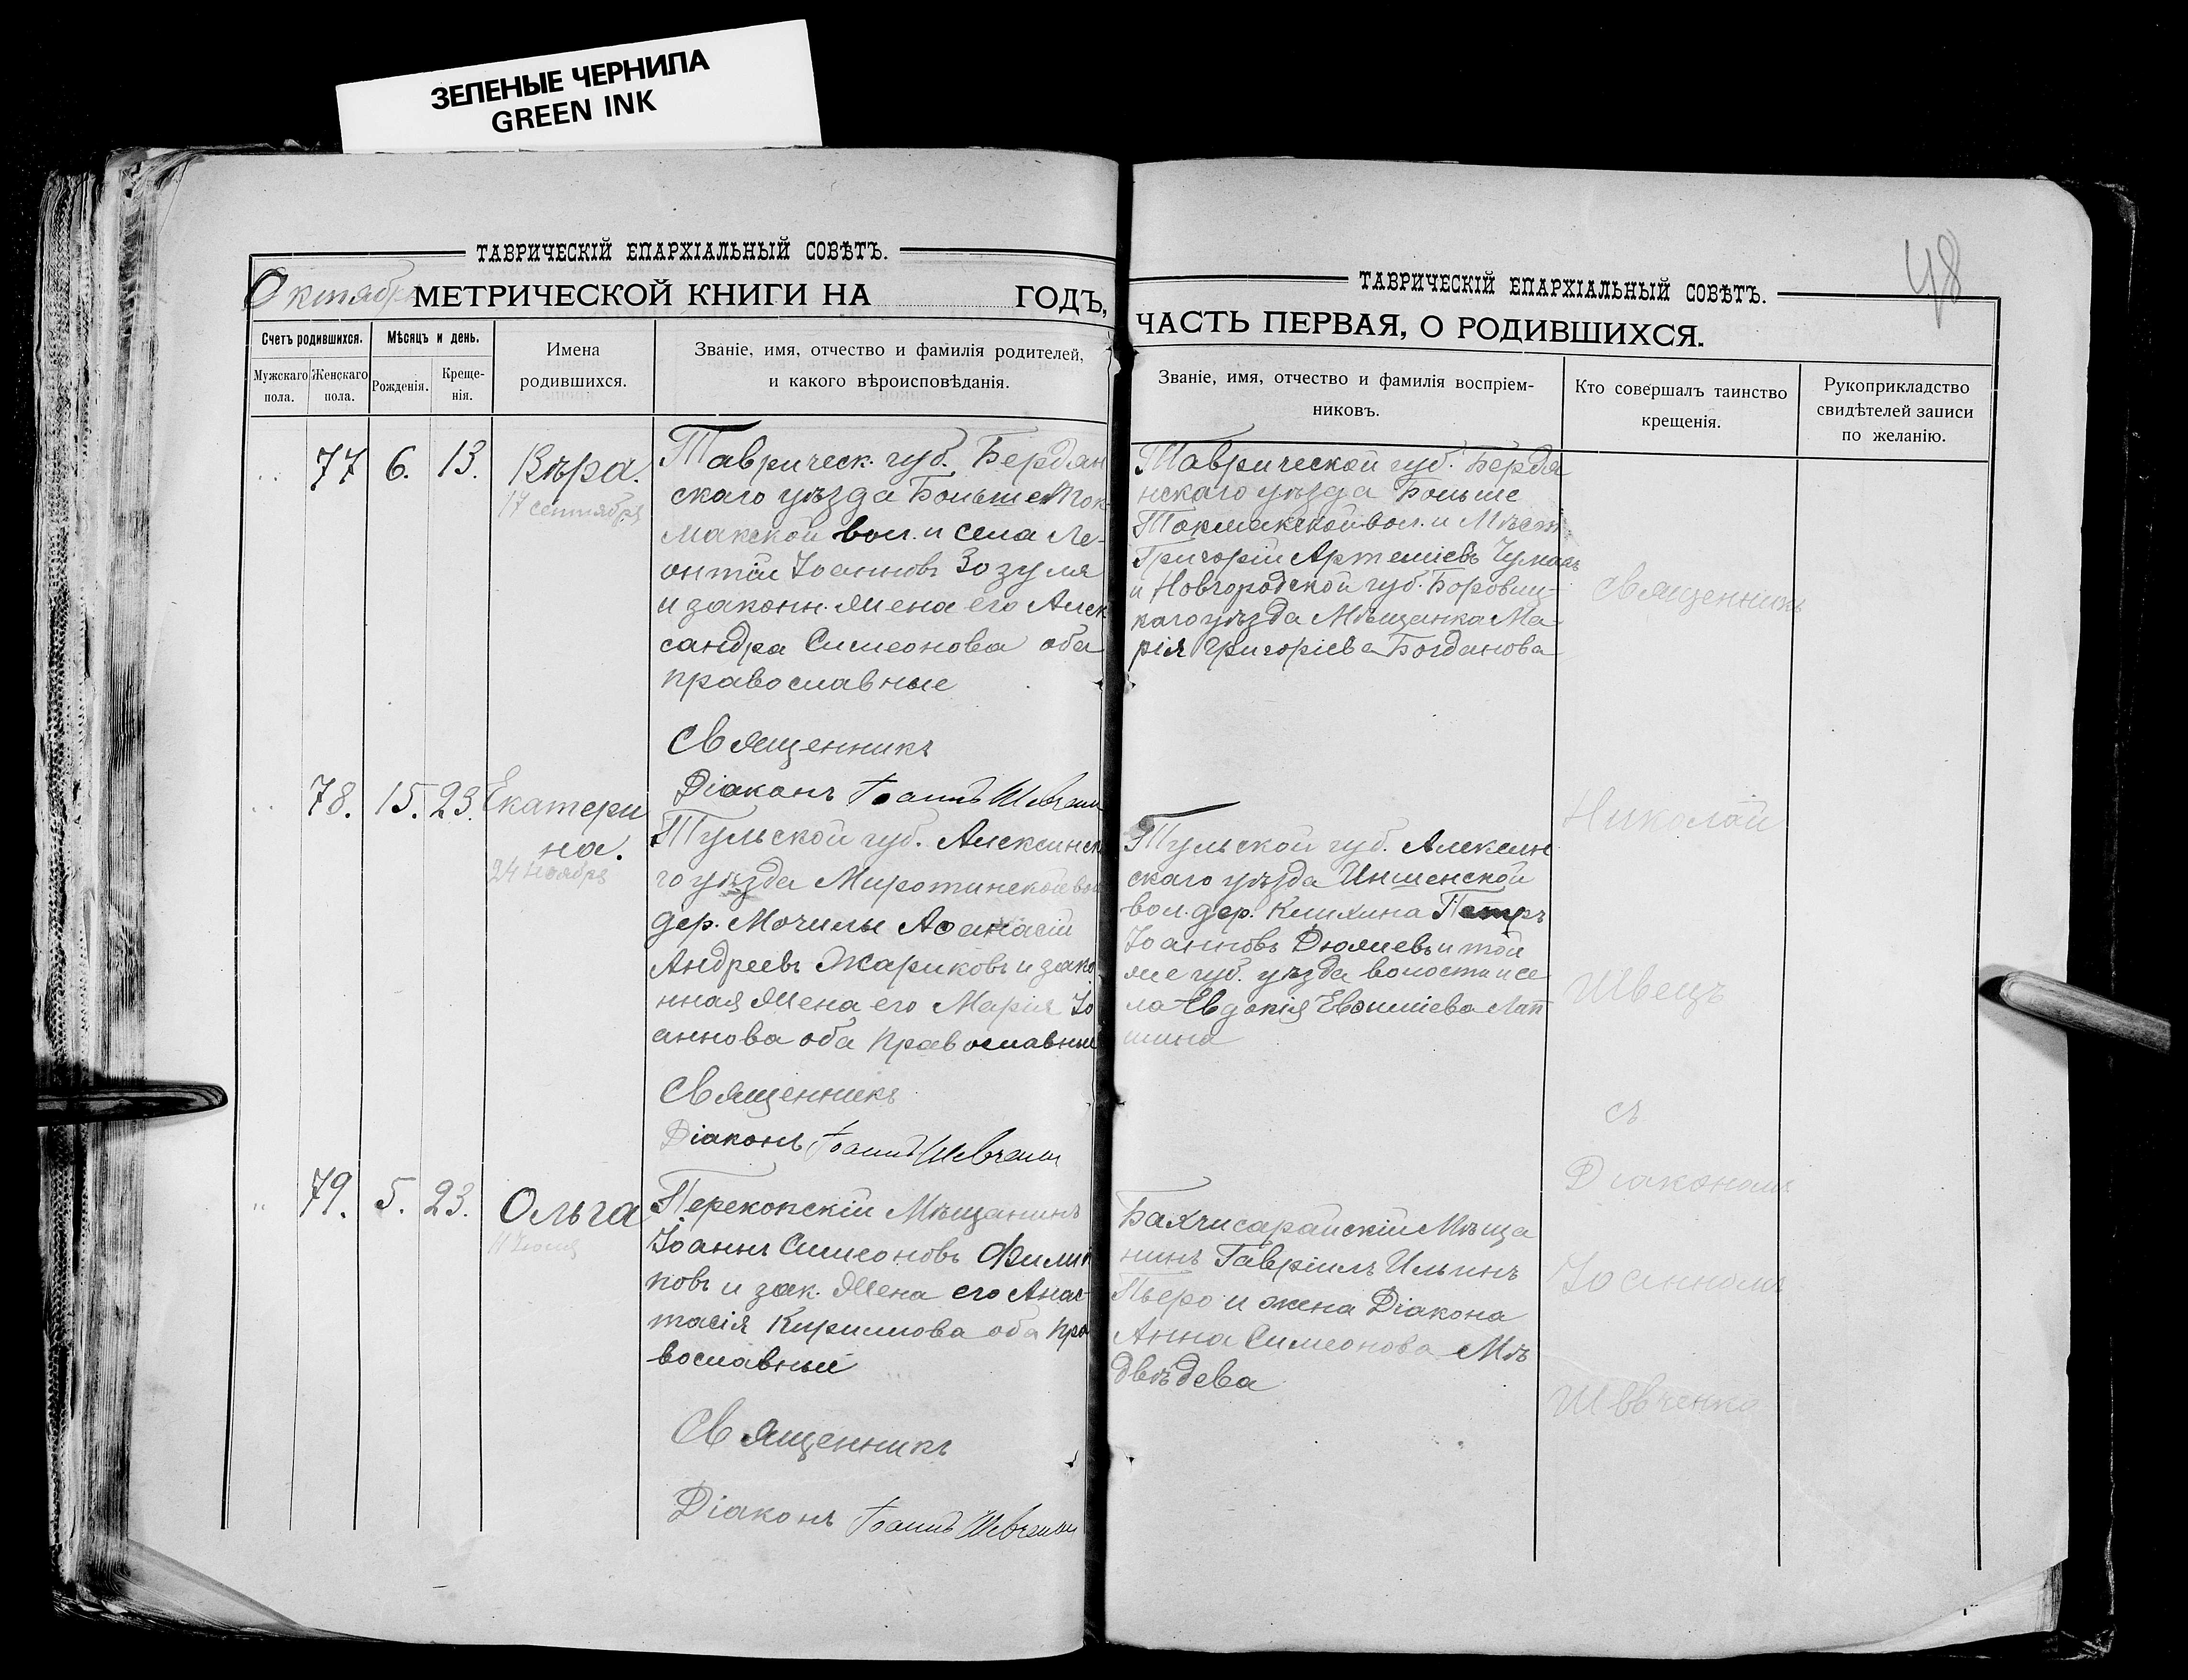 ЗЕЛЕНЫЕ ЧЕРНИЛА
GREEN INK
ТАВРИЧЕСКІЙ ЕПАРХІАЛЬНЫЙ СОВѢТЪ.
Октябрь МЕТРИЧЕСКОЙ КНИГИ НА ГОДЪ,
Счетъ родившихся.
Мужскаго пола.
Женскаго пола.
Мѣсяцъ и день.
Рожденія.
Креще-
нія.
Имена
родившихся.
Званіе, имя, отчество и фамилія родителей,
и какого вѣроисповѣданія.
77 6. 13. Вѣра.
17 сентября
Тавричеcк. губ. Бердян
скаго уѣзда Больше Ток
макской вол. и села Ле-
онтій Іоанновъ Зозуля
и законн. жена его Алек
сандра Симеонова оба
православные
Священникъ
Діаконъ Іоаннъ Шевченко
78. 15. 23. Екатери
на.
24 Ноября
Тульской губ. Алексинск
го уѣзда Миротинской вол
дер. Мочилы Аѳанасій
Андреевъ Жариковъ и зако
нная жена его Марія Іо
аннова оба православные
Священникъ
Діаконъ Іоаннъ Шевченко
79. 5. 23. Ольга
11 Іюля
Перекопскій Мѣщанинъ
Іоаннъ Симеоновъ Филип
повъ и зак. жена его Анас-
тасія Кирилова оба пра
вославные
Священникъ
Діаконъ Іоаннъ Шевченко
48
ТАВРИЧЕСКІЙ ЕПАРХІАЛЬНЫЙ СОВѢТЪ.
ЧАСТЬ ПЕРВАЯ, О РОДИВШИХСЯ.
Званіе, имя, отчество и фамилія воспріем-
никовъ.
Кто совершалъ таинство
крещенія.
Рукоприкладство
свидѣтелей записи
по желанію.
Таврической губ. Бердя
нскаго уѣзда Больше
Токмакской вол. и Мѣст.
Григорій Артеміевъ Чумакъ
и Новгородской губ. Боровиц-
каго уѣзда Мѣщанка Ма-
рія Григоріева Богданова
Тульской губ. Алексин
скаго уѣзда
вол. дер. Петръ
Іоанновъ и той
же губ. уѣзда волости и се
ла Евдокія Евѳиміева Лап
шина
Бахчисарайскій Мѣща
нинъ Гавріилъ Ильинъ
Пьеро и жена Діакона
Анна Симеонова Мѣ
двѣдева
Священникъ
Николай
Швецъ
съ
Діакономъ
Іоанномъ
Шевченко